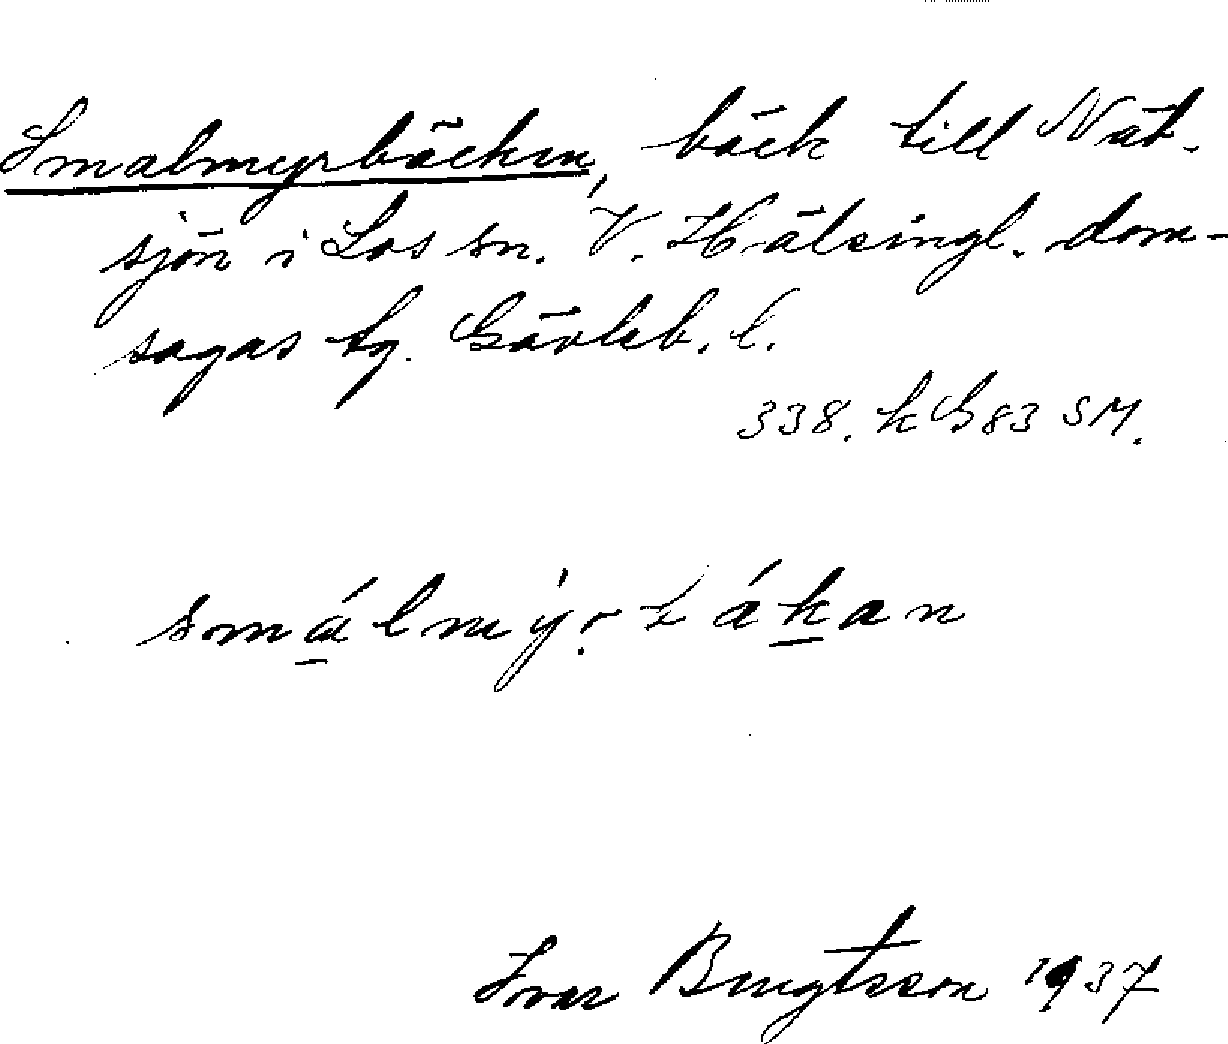 Smalmyrbäcken, bäck till Nät-
sjön i Los sn. V. Hälsingl. dom-
sagas tg. Gävleb. l.
338. k G 83 SM.
smálmýrbákan
Ivar Bengtsson 1937